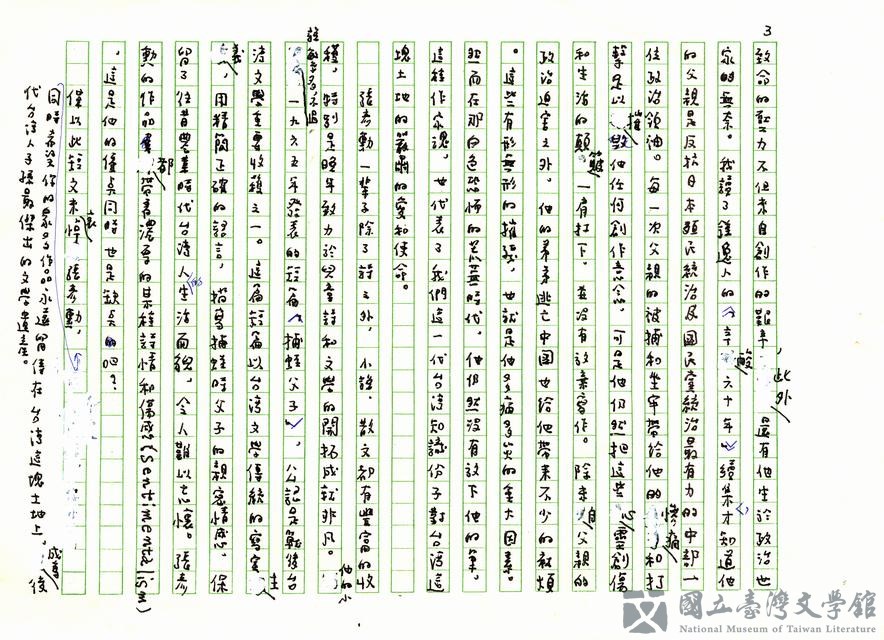 3
致命的壓力不但來自創作的艱辛,此外還有他生於政治也
家的無奈。我讀了鍾逸人的《辛酸六十年》續集才知道他
的父親是反抗日本殖民統治及國民黨統治最有力的中部一
位政治領袖。每一次父親的被捕和坐牢帶給他的慘痛和打
擊足以摧毀他任何創作意念。可是他仍然把這些心靈創傷
和生活的顛簸一肩打下。並沒有放棄寫作。除來自父親的
政治迫害之外。他的弟弟逃亡中國也給他帶來不少的麻煩
。這些有形無形的摧殘,也就是他多病多災的重大因素。
然而在那白色恐怖的荒蕪時代,他仍然沒有放下他的筆。
這種作家魂,也代表了我們這一代台灣知識份子對台灣這
塊土地的嚴肅的愛和使命。
張彥勳一輩子除了詩之外,小說、散文都有豐富的收
穫,特別是晚年致力於兒童詩和文學的開拓成就非凡。他的小
說為數不多,不過一九六五年發表的短篇〈捕蛙父子〉,公認是戰後台
灣文學重要收穫之一。這篇短篇以台灣文學傳統的寫實主
義,用精簡正確的語言,描寫捕蛙時父子的親密情感,保
留了往昔農業時代台灣人的生活面貌,令人難以忘懷。張彥
勳的作品都帶著濃厚的某種詩情和傷感(Sentimentalism)
,這是他的優點同時也是缺點的吧?
僅以此短文來哀悼張彥勳,
同時希望你的眾多作品永遠留傳在台灣這塊土地上,成為後
代台灣人子孫最傑出的文學遺產。
國立臺灣文學館
National Museum of Taiwan Literature